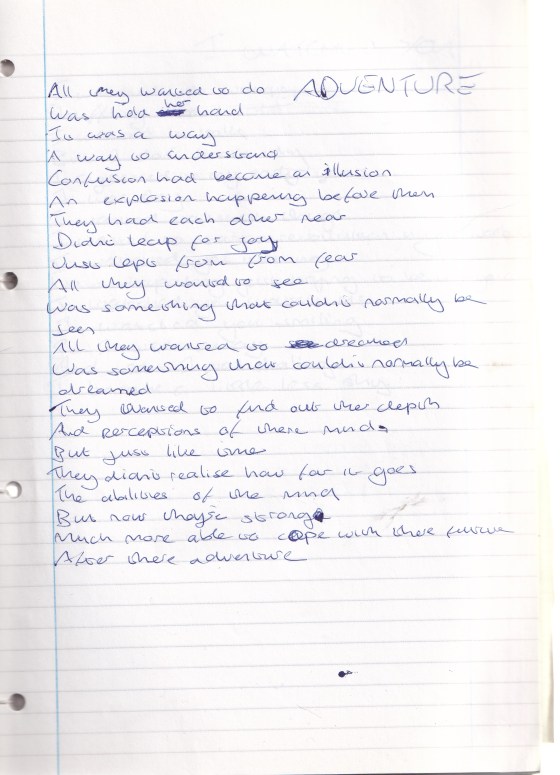 ADVENTURE
All they wanted to do
Was hold her hand
It was a way
A way to understand
Confusion had become an illusion
An explosion happening before them
They had each other near
Didnt leap for joy
Just leapt from from fear
All they wanted to see
Was something that couldnt normally be
seen
All they wanted to dreamed
Was something that couldnt normally be
dreamed
They wanted to find out the depth
And perceptions of there minds
But just like time
They didnt realise how far it goes
The abilities of the mind
But now theyre strong
Much more able to cope with there future
After there adventure